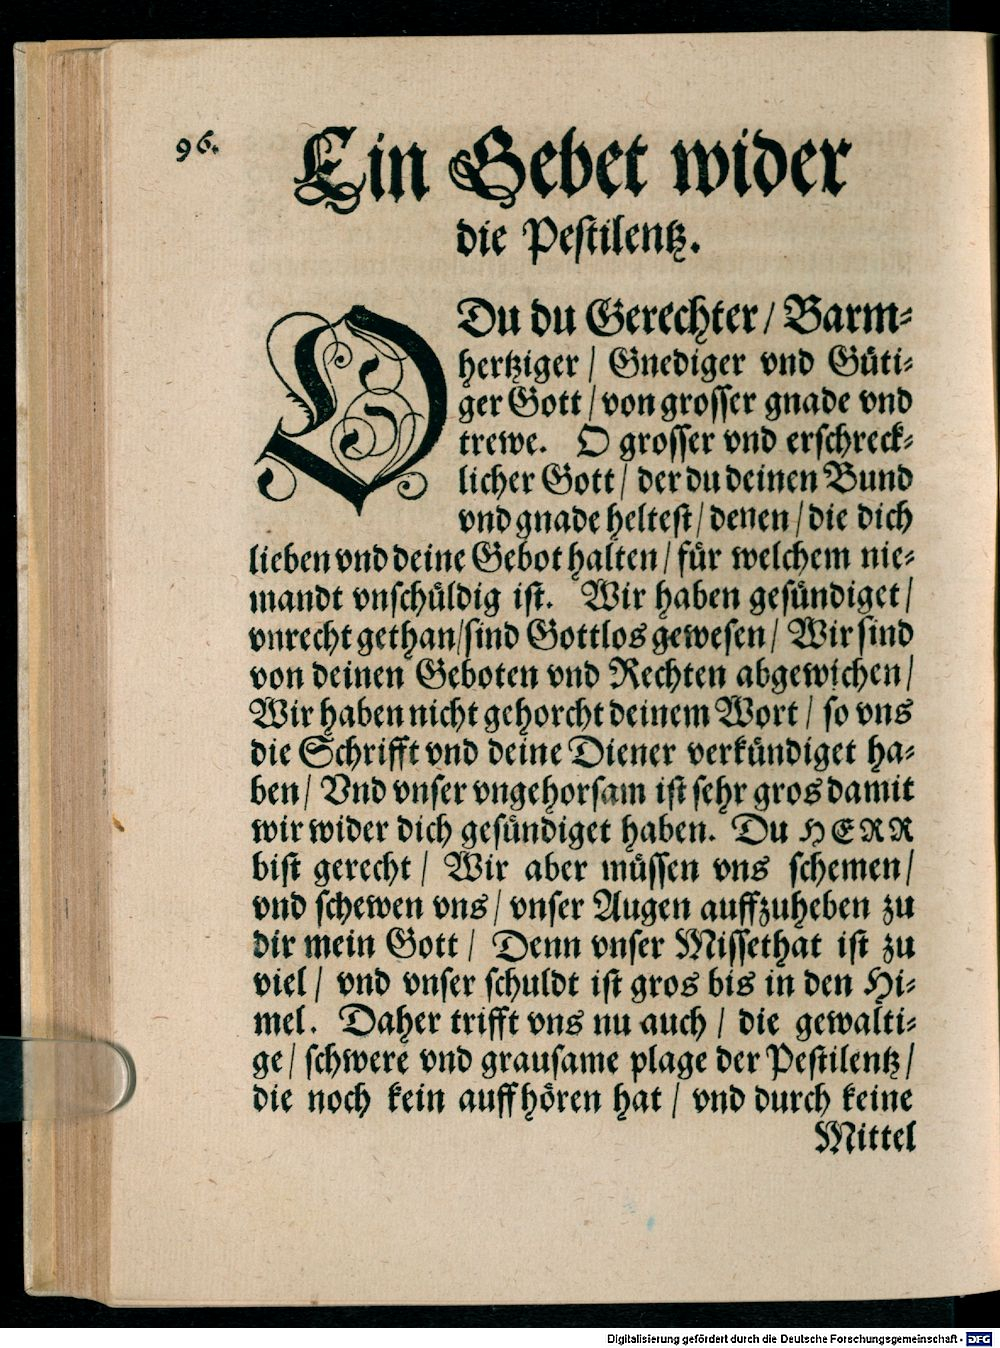 96.
Ein Gebet wider
die Pestilentz.
O Du du Gerechter / Barm⸗
hertziger / Gnediger vnd Gütі⸗
ger Gott / von grosser gnade vnd
trewe. O grosser vnd erschreck⸗
licher Gott / der du deinen Bund
vnd gnade heltest / denen / die dich
lieben vnd deine Gebot halten / für welchem nie⸗
mandt vnschüldig ist. Wir haben gesündiget /
vnrecht gethan / sind Gottlos gewesen / Wir sind
von deinen Geboten vnd Rechten abgewichen /
Wir haben nicht gehorcht deinem Wort / so vns
die Schrifft vnd deine Diener verkündiget ha⸗
ben / Vnd vnser vngehorsam ist sehr gros damit
wir wider dich gesündiget haben. Du HERR
bist gerecht / Wir aber müssen vns schemen /
vnd schewen vns / vnser Augen auffzuheben zu
dir mein Gott / Denn vnser Missethat ist zu
viel / vnd vnser schuldt ist gros bis in den Hi⸗
mel. Daher trifft vns nu auch / die gewalti⸗
ge / schwere vnd grausame plage der Pestilentz /
die noch kein auffhören hat / vnd durch keine
Mittel
Digitalisierung gefördert durch die Deutsche Forschungsgemeinschaft - DFG